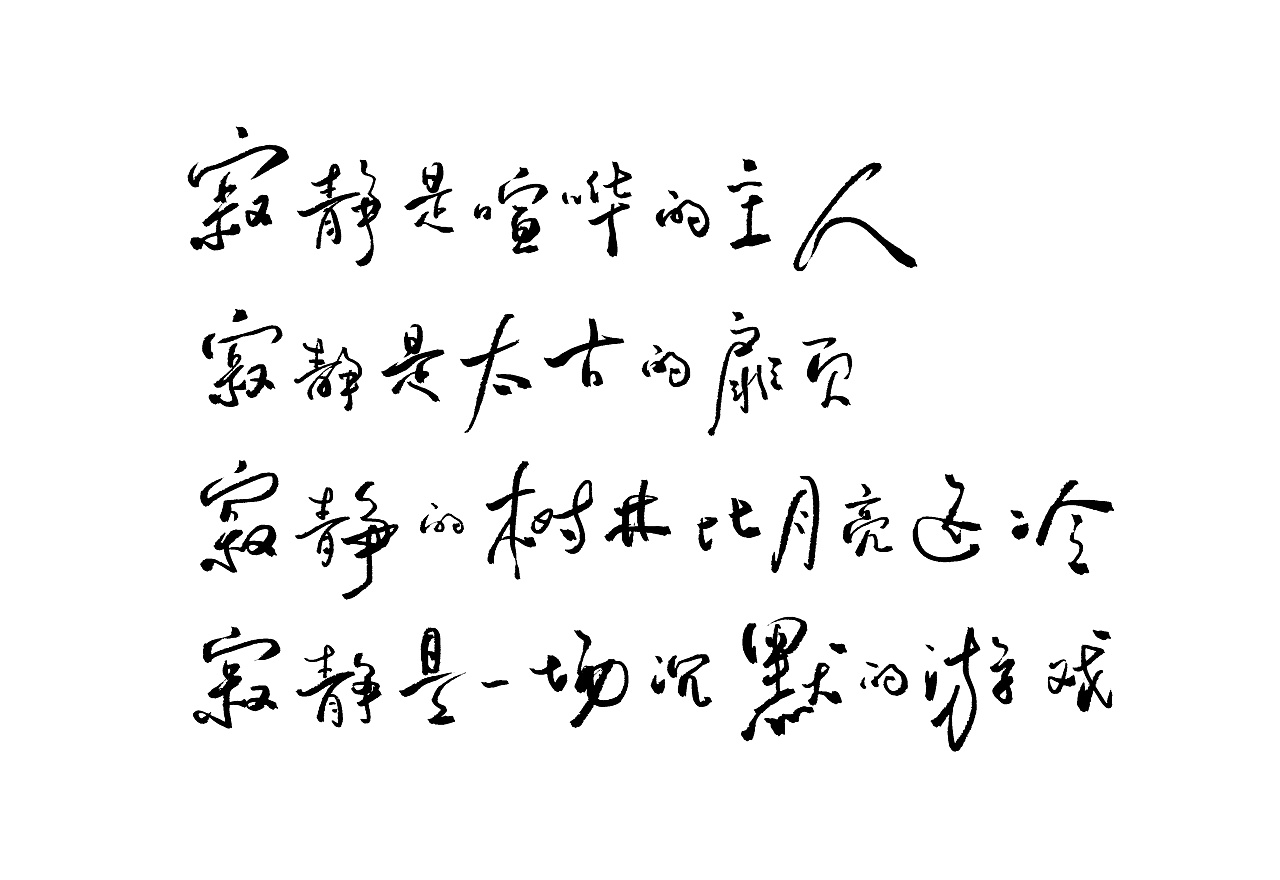 寂静是喧哗的主人
寂静是太古的扉页
寂静的树林比月亮还冷
寂静是一场沉默的游戏